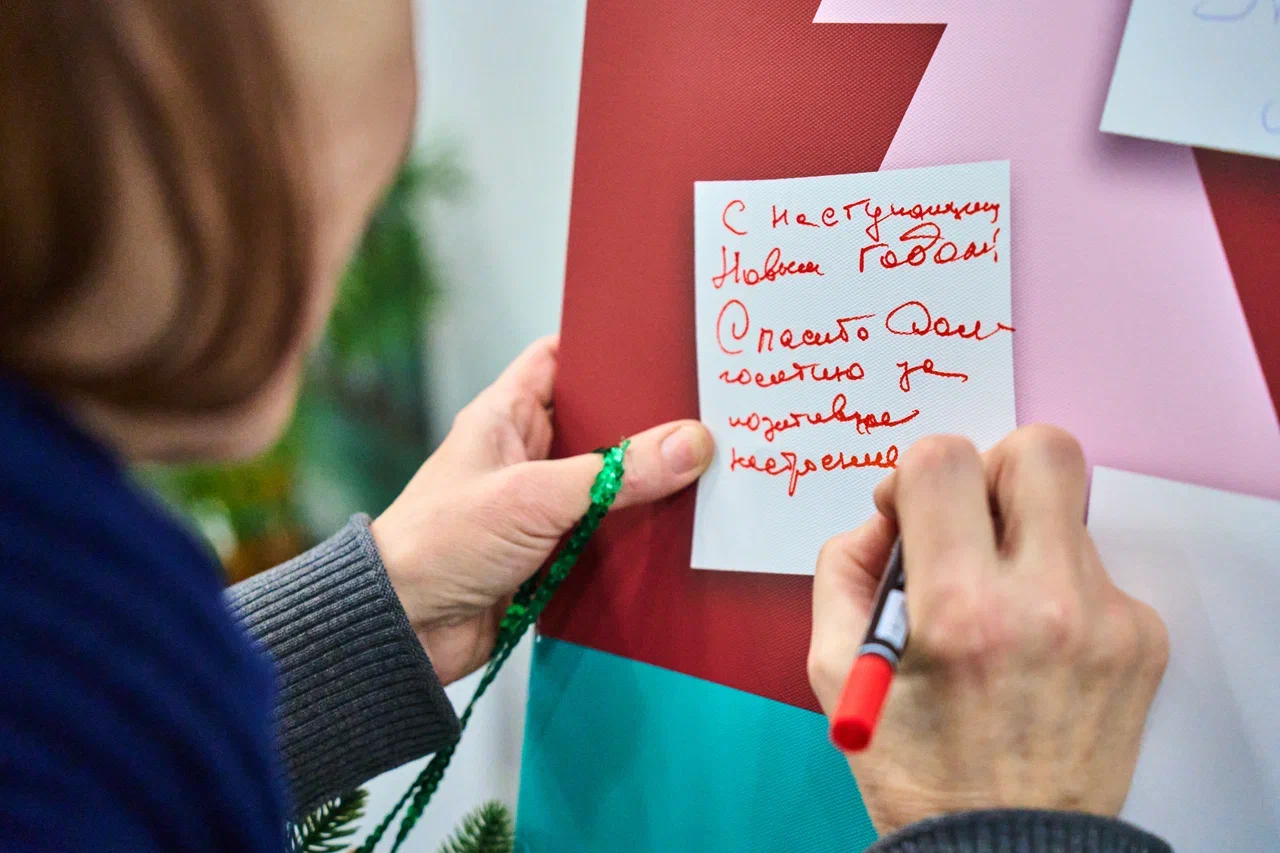 С наступающим
Новым Годом!
Спасибо Дол
голетию за
позитивное
настроение